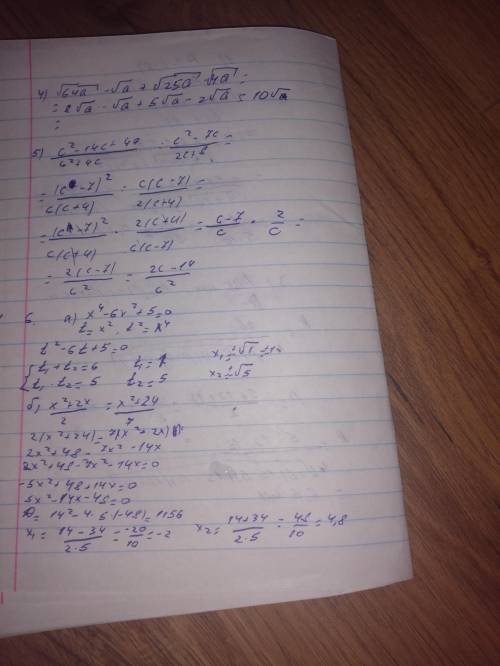 4) √64a - √a + √25a - √4a =
= 8√a - √a + 5√a - 2√a = 10√a
=
5) (c² - 14c + 49)/(c² + 4c) : (c² - 7c)/(2c + 8) =
= (c - 7)²/(c(c+4)) : (c(c-7))/(2(c+4)) =
= (c - 7)²/(c(c+4)) · (2(c+4))/(c(c-7)) = (c-7)/c · 2/c =
= (2(c-7))/c² = (2c-14)/c²
6. a) x⁴ - 6x² + 5 = 0
t = x², t² = x⁴
t² - 6t + 5 = 0
{ t₁ + t₂ = 6 t₁ = 1 x₁ = ±√1 = ±1
{ t₁ · t₂ = 5 t₂ = 5 x₂ = ±√5
б) (x² + 2x)/2 = (x² + 24)/7
2(x² + 24) = 7(x² + 2x)
2x² + 48 = 7x² - 14x
2x² + 48 - 7x² - 14x = 0
-5x² + 48 + 14x = 0
5x² - 14x - 48 = 0
D = 14² - 4 · 5 · (-48) = 1156
x₁ = (14 - 34)/(2·5) = -20/10 = -2 x₂ = (14 + 34)/(2·5) = 48/10 = 4,8